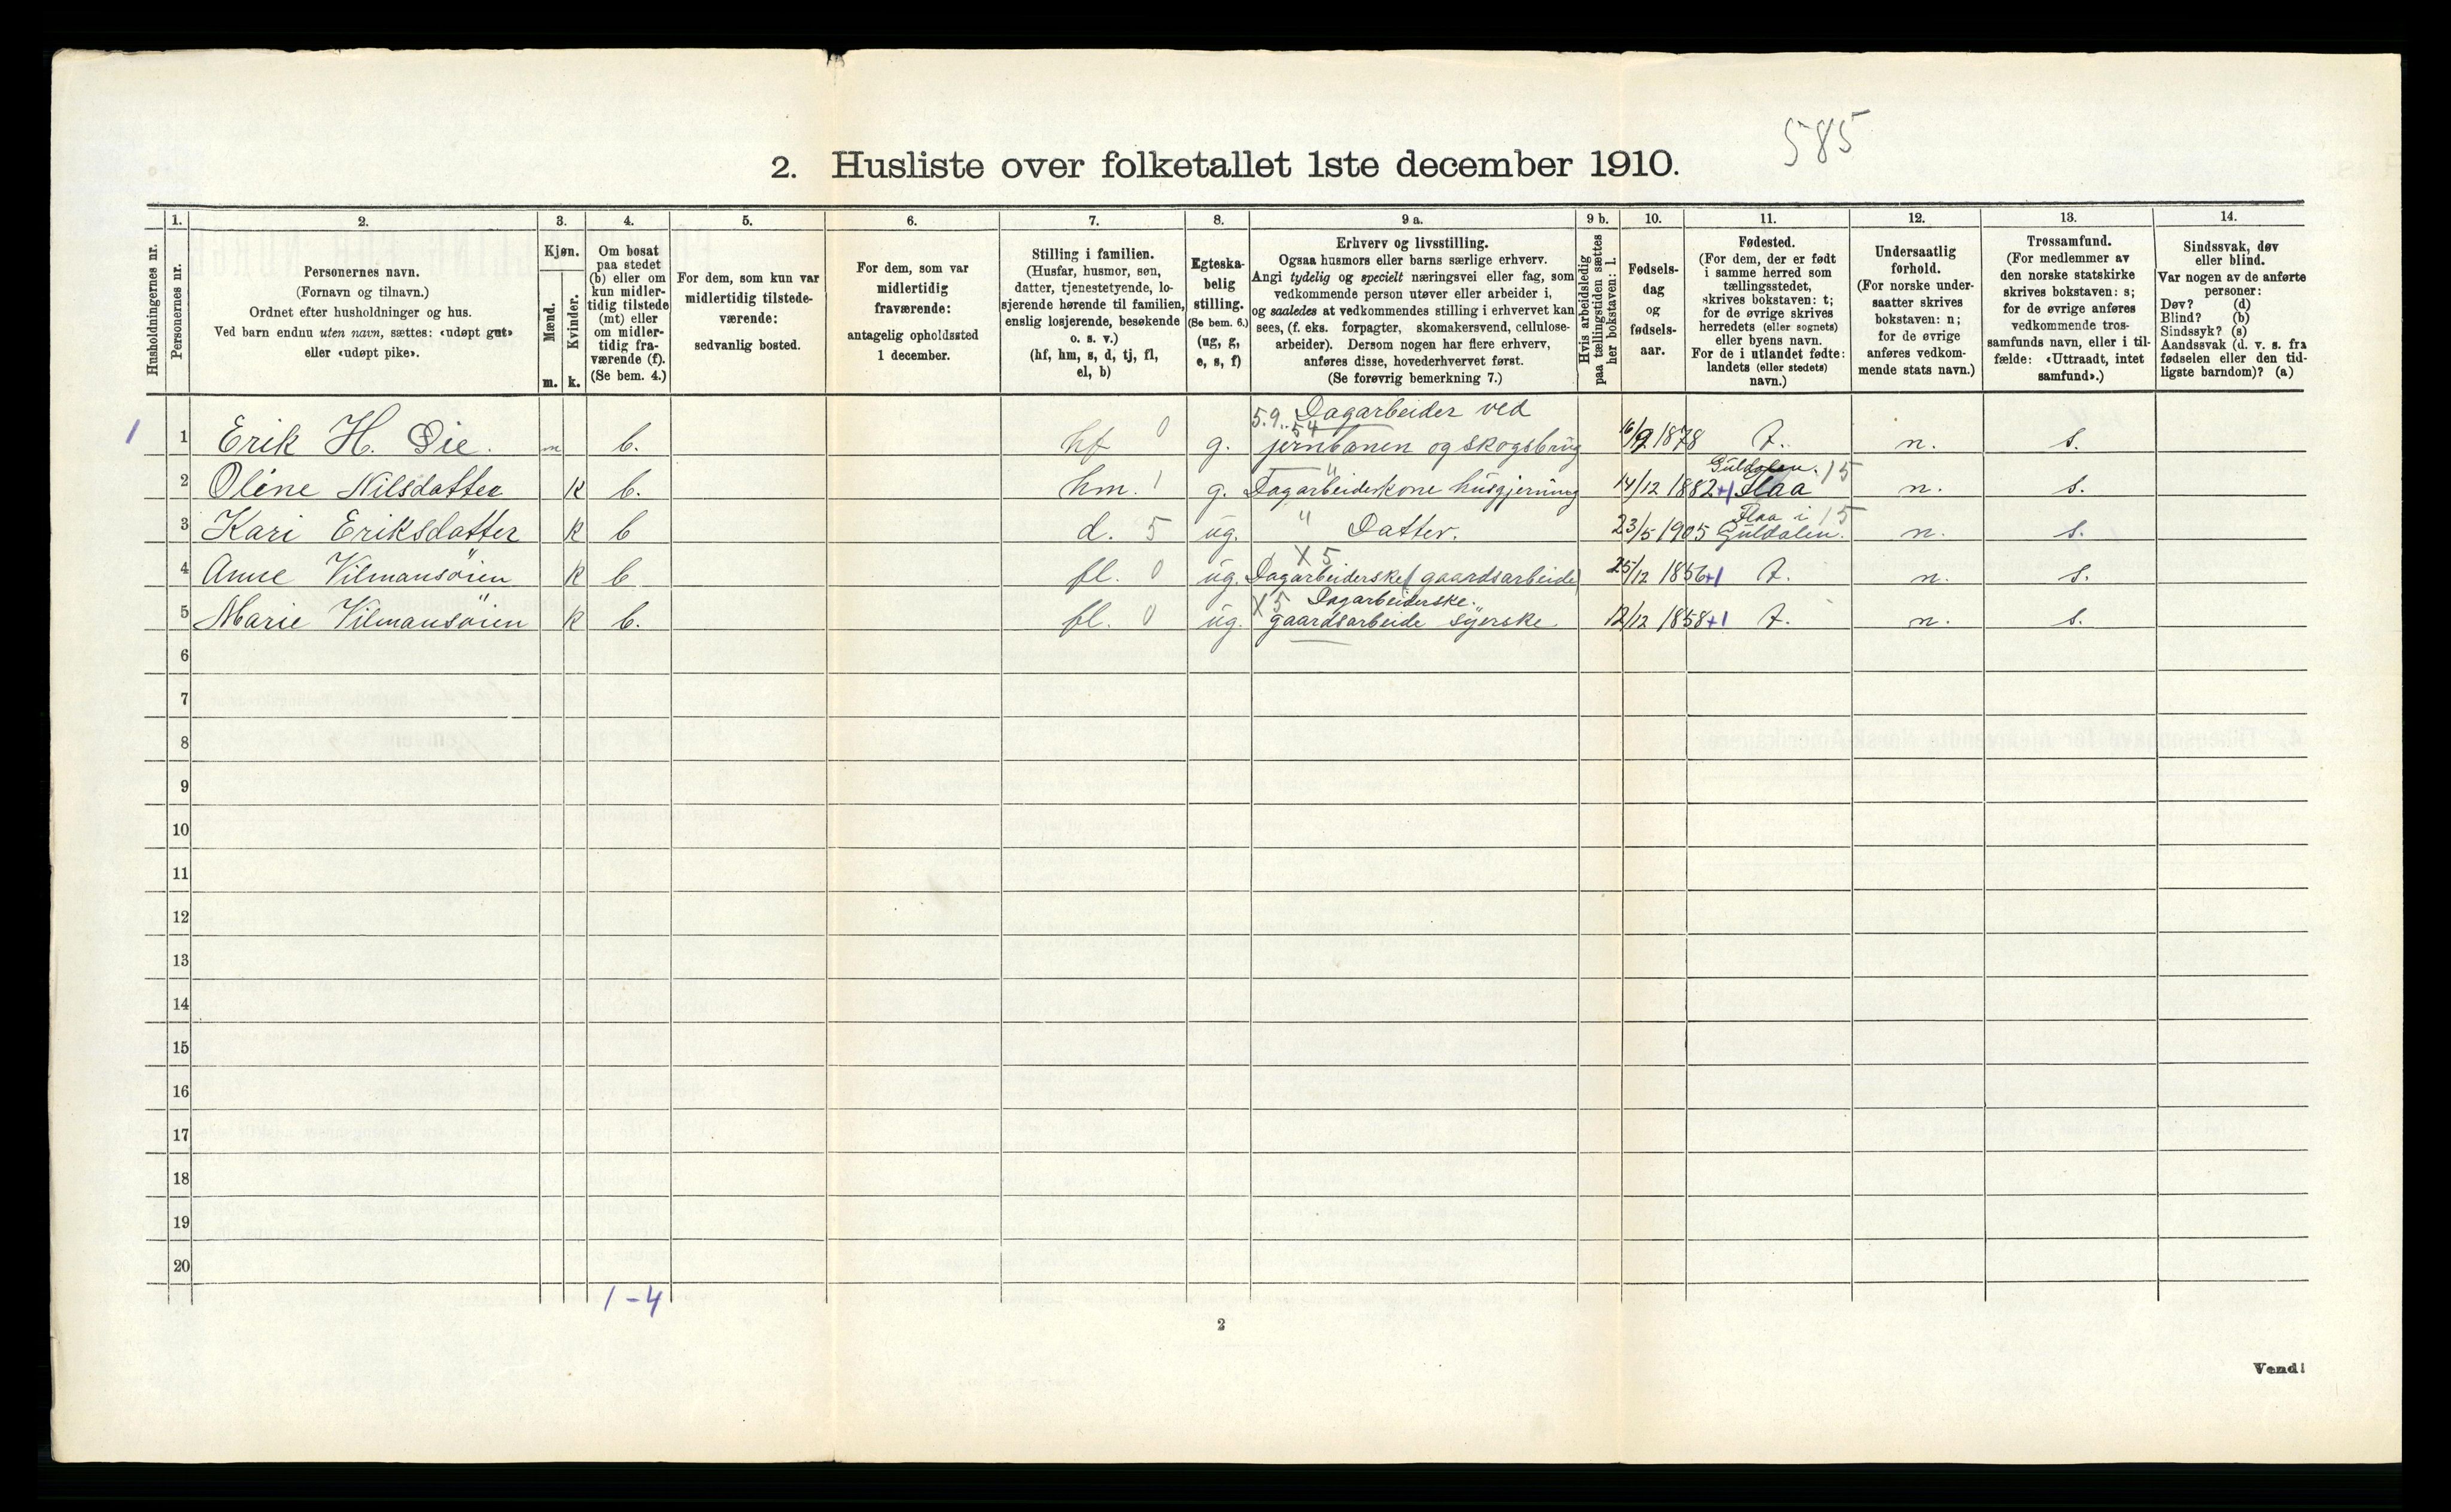 585
2. Husliste over folketallet 1ste december 1910.
Husholdningernes nr.
1.
Personernes nr.
2.
Personernes navn.
(Fornavn og tilnavn.)
Ordnet efter husholdninger og hus.
Ved barn endnu uten navn, sættes: «udøpt gut»
eller «udøpt pike».
3.
Kjøn.
Mænd.
Kvinder.
m. k.
4.
Om bosat
paa stedet
(b) eller om
kun midler-
tidig tilstede
(mt) eller
om midler-
tidig fra-
værende (f).
(Se bem. 4.)
5.
For dem, som kun var
midlertidig tilstede-
værende:
sedvanlig bosted.
6.
For dem, som var
midlertidig
fraværende:
antagelig opholdssted
1 december.
7.
Stilling i familien.
(Husfar, husmor, søn,
datter, tjenestetyende, lo-
sjerende hørende til familien,
enslig losjerende, besøkende
o. s. v.)
(hf, hm, s, d, tj, fl,
el, b)
8.
Egteska-
belig
stilling.
(Se bem. 6.)
(ug, g,
e, s, f)
9 a.
Erhverv og livsstilling.
Ogsaa husmors eller barns særlige erhverv.
Angi tydelig og specielt næringsvei eller fag, som
vedkommende person utøver eller arbeider i,
og saaledes at vedkommendes stilling i erhvervet kan
sees, (f. eks. forpagter, skomakersvend, cellulose-
arbeider). Dersom nogen har flere erhverv,
anføres disse, hovederhvervet først.
(Se forøvrig bemerkning 7.)
9 b.
Hvis arbeidsledig
paa tællingstiden sættes
her bokstaven: l.
10.
Fødsels-
dag
og
fødsels-
aar.
11.
Fødested.
(For dem, der er født
i samme herred som
tællingsstedet,
skrives bokstaven: t;
for de øvrige skrives
herredets (eller sognets)
eller byens navn.
For de i utlandet fødte:
landets (eller stedets)
navn.)
12.
Undersaatlig
forhold.
(For norske under-
saatter skrives
bokstaven: n;
for de øvrige
anføres vedkom-
mende stats navn.)
13.
Trossamfund.
(For medlemmer av
den norske statskirke
skrives bokstaven: s;
for de øvrige anføres
vedkommende tros-
samfunds navn, eller i til-
fælde: «Uttraadt, intet
samfund».)
14.
Sindssvak, døv
eller blind.
Var nogen av de anførte
personer:
Døv? (d)
Blind? (b)
Sindssyk? (s)
Aandssvak (d. v. s. fra
fødselen eller den tid-
ligste barndom)? (a)
5.9..54 Dagarbeider ved
1 1 Erik H. Øie. m b. hf 0 g. jernbanen og skogsbrug 16/9 1878 t. n. s.
" Guldalen. 15
2 Oline Nilsdatter k b. hm. 1 g. Dagarbeiderkone husgjerning 14/12 1882+1 Flaa n. s.
" Flaa i 15
3 Kari Eriksdatter k b d. 5 ug. Datter. 23/5 1905 Guldalen. n. s.
X 5
4 Anne Vilmansöien k b fl. 0 ug. Dagarbeiderske (gaardsarbeide) 25/12 1856+1 t. n. s.
X5 Dagarbeiderske.
5 Marie Vilmansöien k b. fl. 0 ug. gaardsarbeide syerske 12/12 1858+1 t. n. s.
6
7
8
9
10
11
12
13
14
15
16
17
18
19
20
1-4
2
Vend!